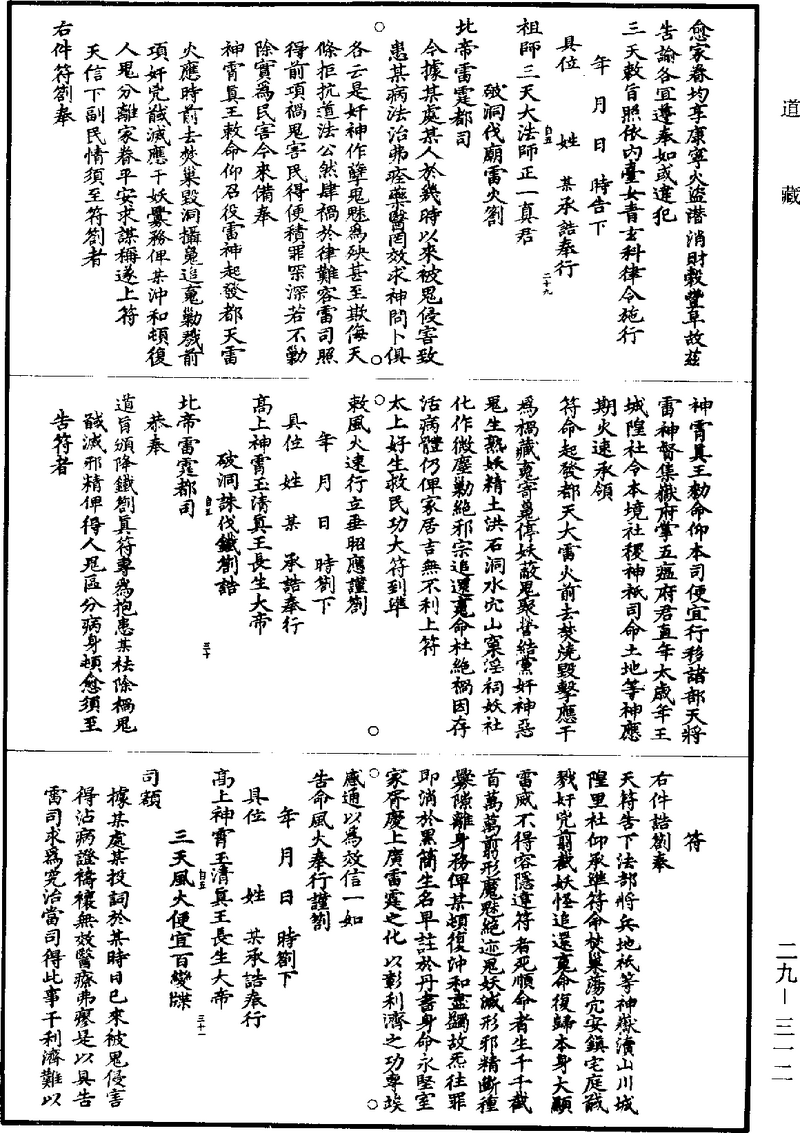 道藏
愈家眷均享康寧火盜潛消財穀豐阜故茲
告諭各宜遵奉如或違犯
三天敕旨照依内臺女青玄科律令施行
年 月 日 時告下
具位 姓 某承誥奉行
祖師三天大法師正一真君
破洞伐廟雷火劄
北帝雷霆都司
今據某處某人於幾時以來被鬼侵害致
患某病法治弗痊藥醫罔效求神問卜俱
各云是奸神作孽鬼魅為殃甚至欺侮天
條拒抗道法公然肆禍於律難容雷司照
得前項禍鬼害民得便積罪罙深若不勦
除實為民害今來備奉
神霄真王敕命仰召役雷神起發都天雷
火應時前去焚巢毀洞攝㲋追寃勦戮前
項奸兇馘滅應干妖釁務俾某沖和頓復
人鬼分離家眷平安求謀稱遂上符
天信下副民情須至符劄者
右件符劄奉
二十九
神霄真王勑命仰本司便宜行移諸部天將
雷神督集嶽府掌五瘟府君直年太歲年王
城隍社令本境社稷神祇司命土地等神應
期火速承領
符命起發都天大雷火前去焚燒毀擊應干
為禍藏㲋寄㲋停妖蔽鬼聚營結黨奸神惡
鬼生熟妖精土洪石洞水穴山窠淫祠妖社
化作微塵勦絕邪宗追還㲋命杜絕禍因存
活病體仍俾家居吉無不利上符
太上好生救民功大符到準
敕風火速行立垂昭應謹劄
年 月 日 時劄下
具位 姓 某 承誥奉行
高上神霄玉清真王長生大帝
破洞誅伐鐵劄誥
北帝雷霆都司
三十
恭奉
道旨頒降鐵劄真符專為抱患某袪除禍鬼
馘滅邪精俾得人鬼區分病身頓愈須至
告符者
符
右件誥劄奉
天符告下法部將兵地祇等神嶽瀆山川城
隍里社仰承準符命焚巢蕩穴安鎮宅庭馘
戮奸兇剪截妖怪追還㲋命復歸本身大顯
雷威不得容隱違符者死順命者生千千截
首萬萬剪形魔魅絕迹鬼妖滅形邪精斷種
釁隙離身務俾某頓復沖和盡蠲故炁往罪
即消於黑簡生名早註於丹書身命永堅室
家胥慶上廣雷霆之化以彰利濟之功專俟
感通以為效信一如
告命風火奉行謹劄
年 月 日 時劄下
具位 姓 某承誥奉行
高上神霄玉清真王長生大帝
三天風火便宜百變牒
三十一
司額
據某處某投詞於某時日已來被鬼侵害
得沾病證禱禳無效醫療弗瘳是以具告
雷司求為究治當司得此事干利濟難以
二九—三一二